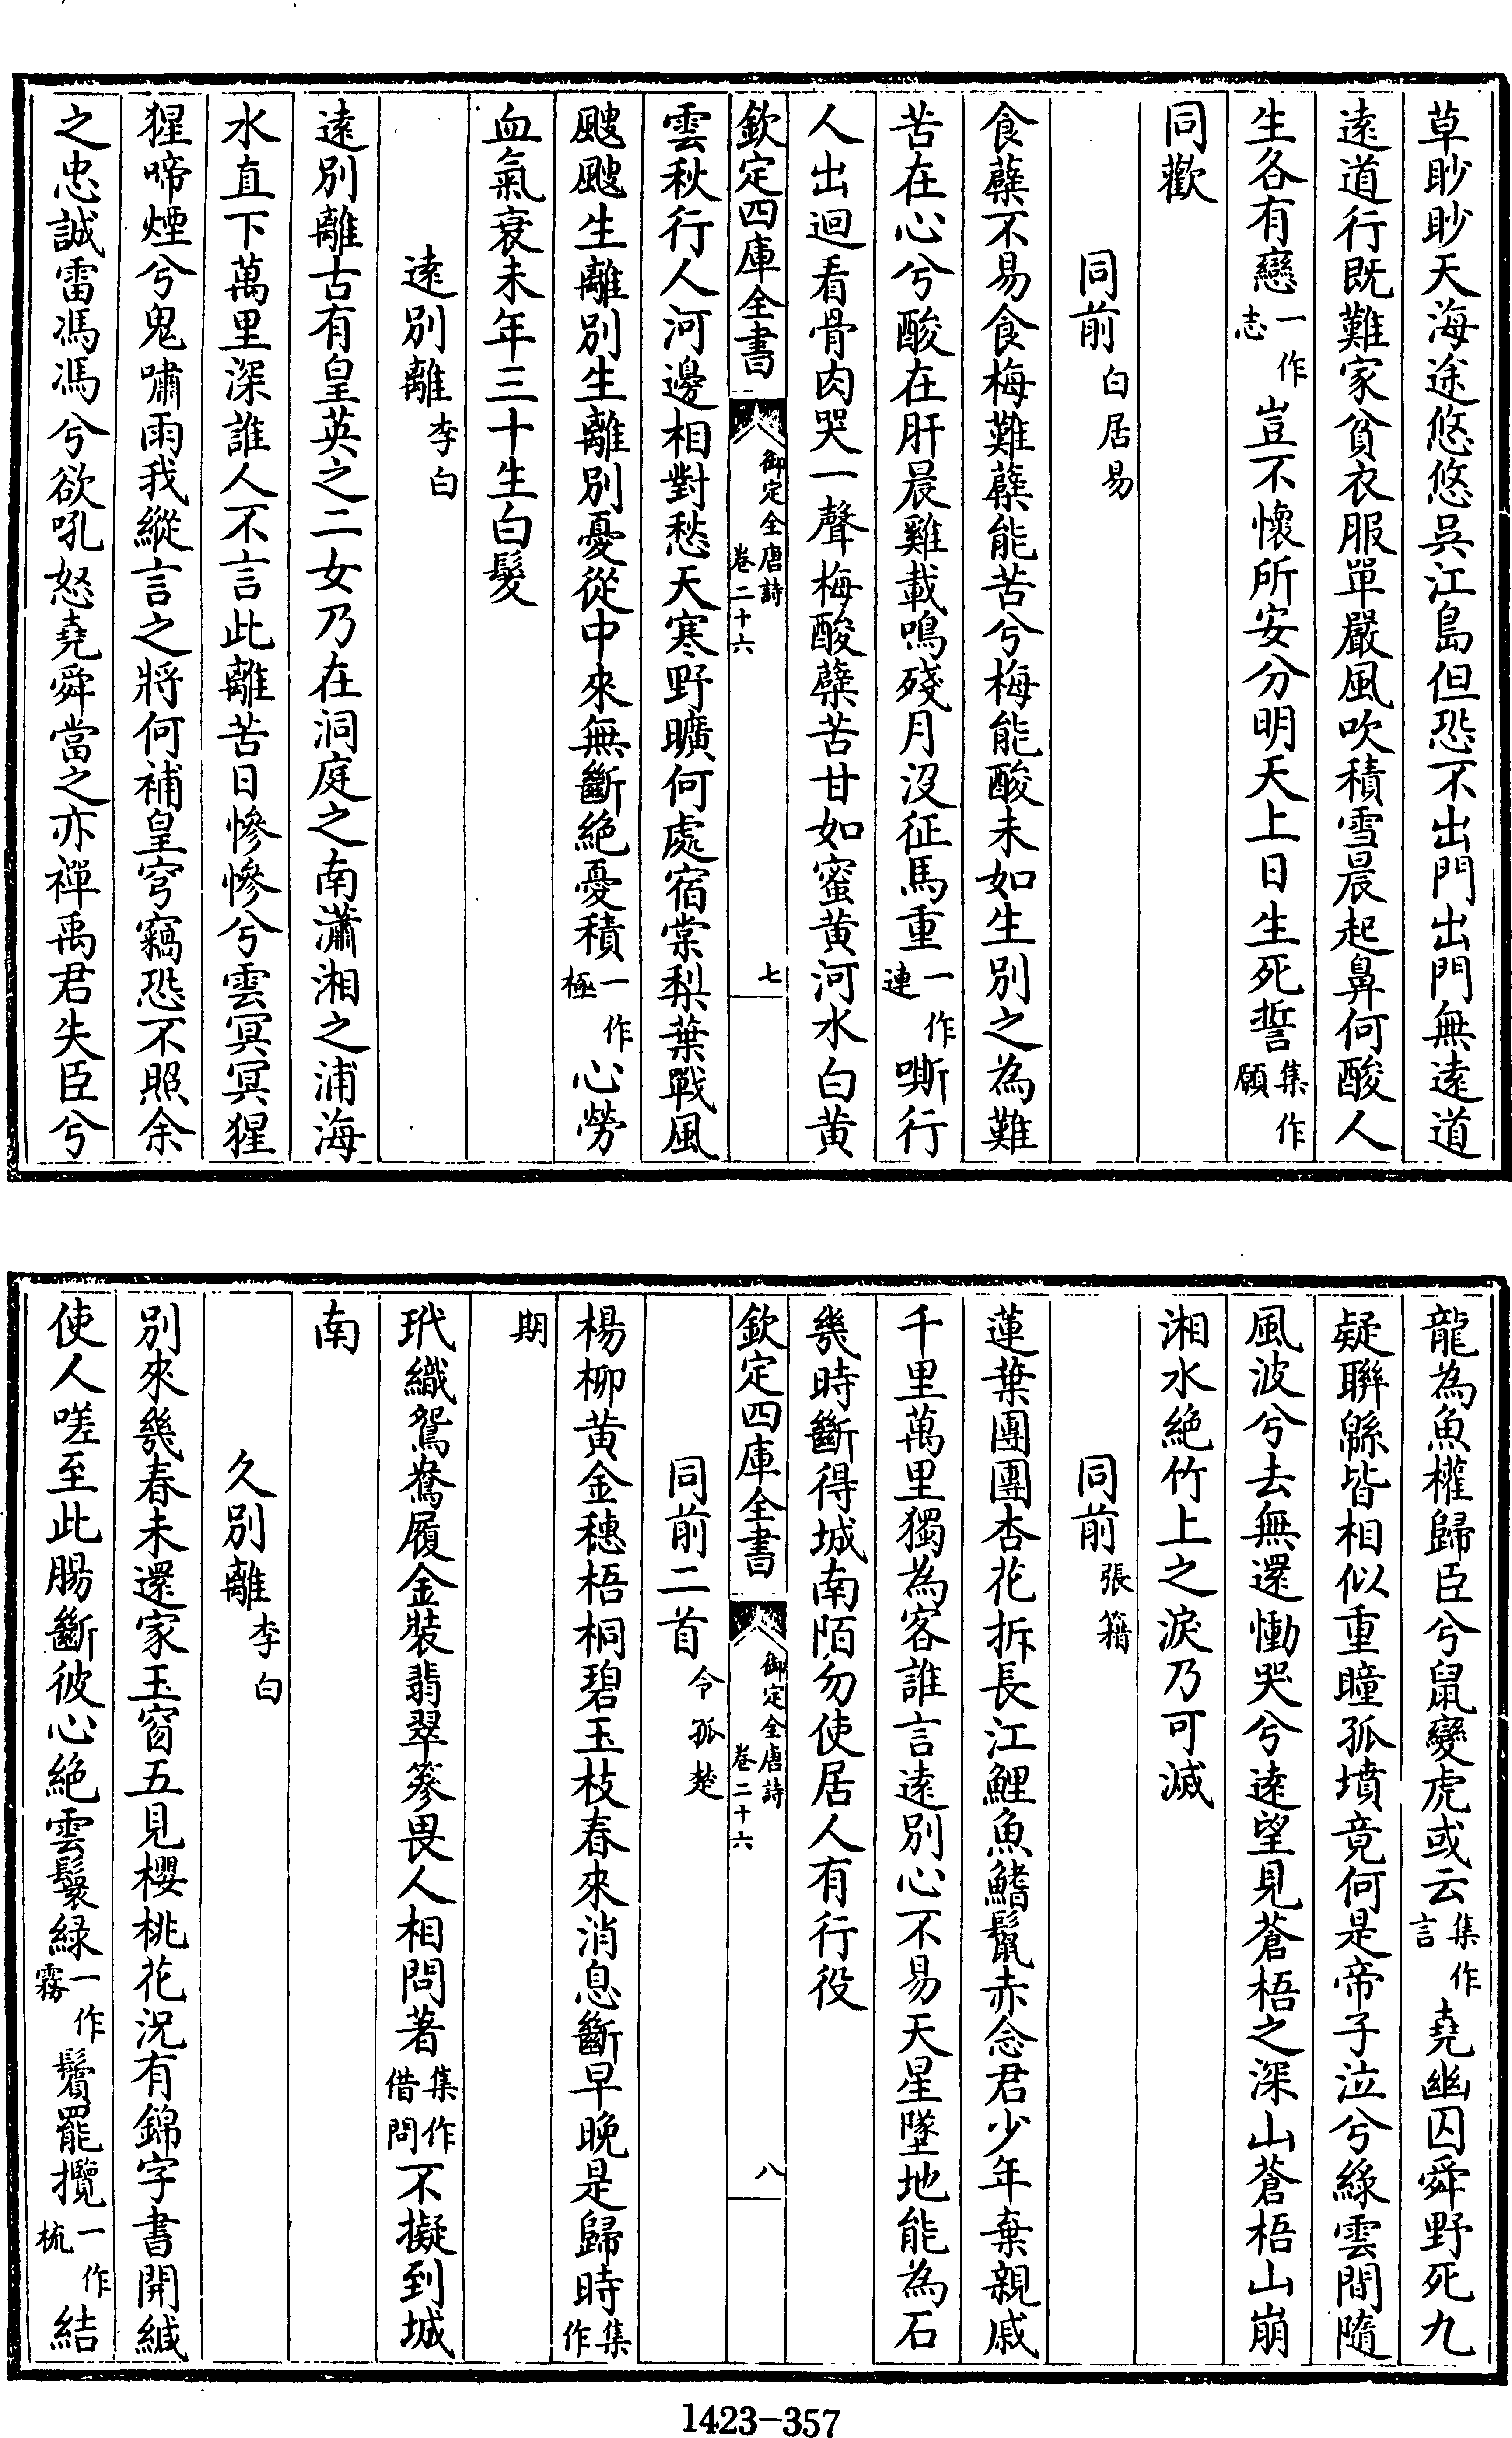 草眇眇天海途悠悠吳江島但恐不出門出門無遠道
遠道行既難家貧衣服單嚴風吹積雪晨起鼻何酸人
生各有戀一作志豈不懷所安分明天上日生死誓集作願
同歡
同前白居易
食蘗不易食梅難蘗能苦兮梅能酸未如生別之為難
苦在心兮酸在肝晨雞載鳴殘月沒征馬重一作連嘶行
人出迴看骨肉哭一聲梅酸蘗苦甘如蜜黄河水白黄
欽定四庫全書 御定全唐詩卷二十六 七
雲秋行人河邊相對愁天寒野曠何處宿棠梨葉戰風
颼颼生離別生離別憂從中來無斷絶憂積一作極心勞
血氣衰未年三十生白髮
遠別離李白
遠別離古有皇英之二女乃在洞庭之南瀟湘之浦海
水直下萬里深誰人不言此離苦日慘慘兮雲冥冥猩
猩啼煙兮鬼嘯雨我縱言之將何補皇穹竊恐不照余
之忠誠雷馮馮兮欲吼怒堯舜當之亦禪禹君失臣兮
龍為魚權歸臣兮鼠變虎或云集作言堯幽囚舜野死九
疑聯緜皆相似重瞳孤墳竟何是帝子泣兮綠雲間隨
風波兮去無還慟哭兮遠望見蒼梧之深山蒼梧山崩
湘水絶竹上之淚乃可滅
同前張籍
蓮葉團團杏花拆長江鯉魚鰭鬣赤念君少年棄親戚
千里萬里獨為客誰言遠別心不易天星墜地能為石
幾時斷得城南陌勿使居人有行役
欽定四庫全書 御定全唐詩卷二十六 八
同前二首令狐楚
楊柳黄金穗梧桐碧玉枝春來消息斷早晚是歸時集作
期
玳織鴛鴦履金裝翡翠篸畏人相問著集作借問不擬到城
南
久別離李白
別來幾春未還家玉窗五見櫻桃花況有錦字書開緘
使人嗟至此腸斷彼心絶雲鬟緑一作霧鬢罷攬一作梳結
1423-357